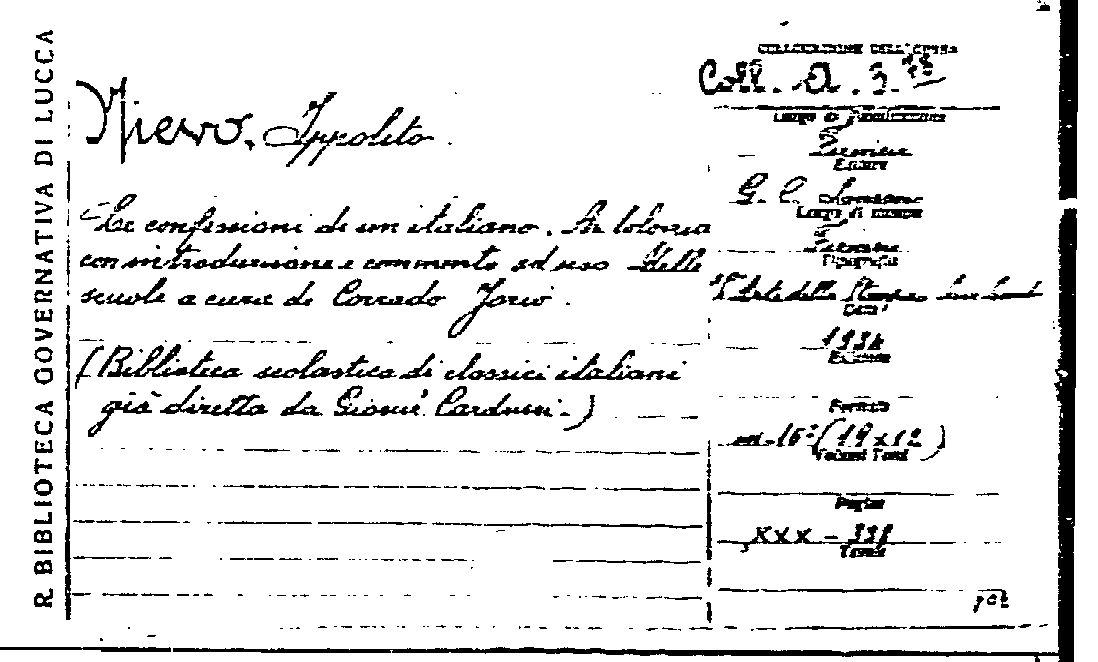 R. BIBLIOTECA GOVERNATIVA DI LUCCA
Nievo. Ippolito.
Le confessioni di un italiano.
con introduzione e commento ad uso delle
scuole a cura di Corrado Jorio.
(Biblioteca scolastica di classici italiani
già diretta da Giosuè Carducci.)
COLLOCAZIONE DELL'OPERA
Coll. A. 3.
Luogo di Pubblicazione
Firenze
Editore
G. C. Sansoni
Luogo di stampa
Firenze
Tipografia
L'Arte della Stampa
Data
1934
Edizione
Formato
in-16° (19x12)
Volumi Tomi
Pagine
XXX - 338
Tavole